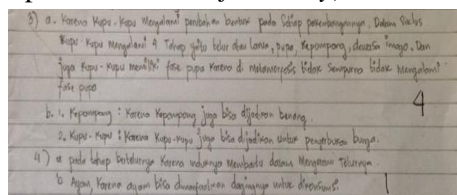 3) a. Karena kupu-kupu Mengalami perubahan bentuk pada setiap perkembangannya. Dalam siklus
kupu-kupu Mengalami 4 Tahap yaitu telur atau Larva, pupa, kepompong, dewasa imago. Dan
juga kupu-kupu memiliki fase pupa karena di metamorfosis tidak sempurna tidak Mengalami
fase pupa
4
b. 1. Kepompong : Karena Kepompong juga bisa dijadikan benang.
2. Kupu-kupu : Karena kupu-kupu juga bisa dijadikan untuk penyerbukan bunga.
4) a pada tahap bertelurnya karena induknya Membantu dalam Mengerami Telurnya.
b Ayam, karena ayam bisa dimanfaatkan dagingnya untuk dikonsumsi
1